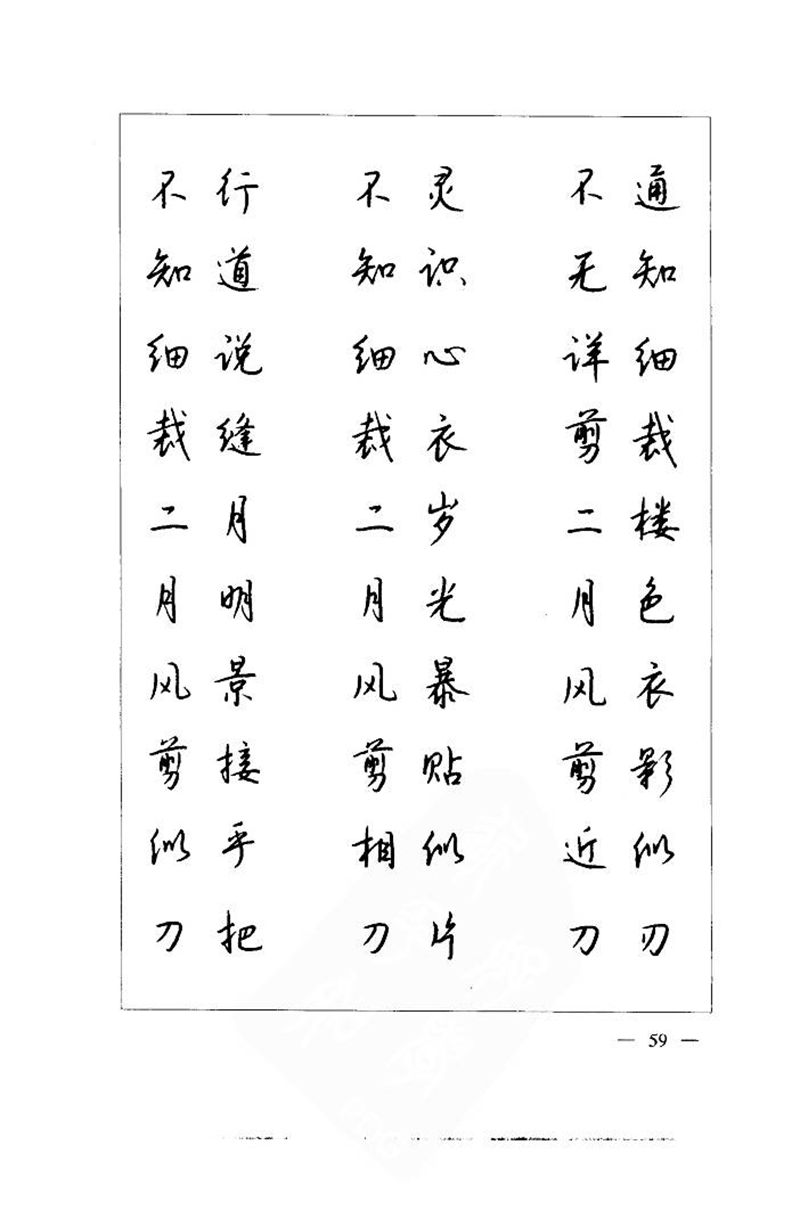 不行 不灵 不通
知道 知识 无知
细说 细心 详细
裁缝 裁衣 剪裁
二月 二岁 二楼
月明 月光 月色
风景 风暴 风衣
剪接 剪贴 剪影
似乎 相似 近似
刀把 刀片 刀刃
— 59 —